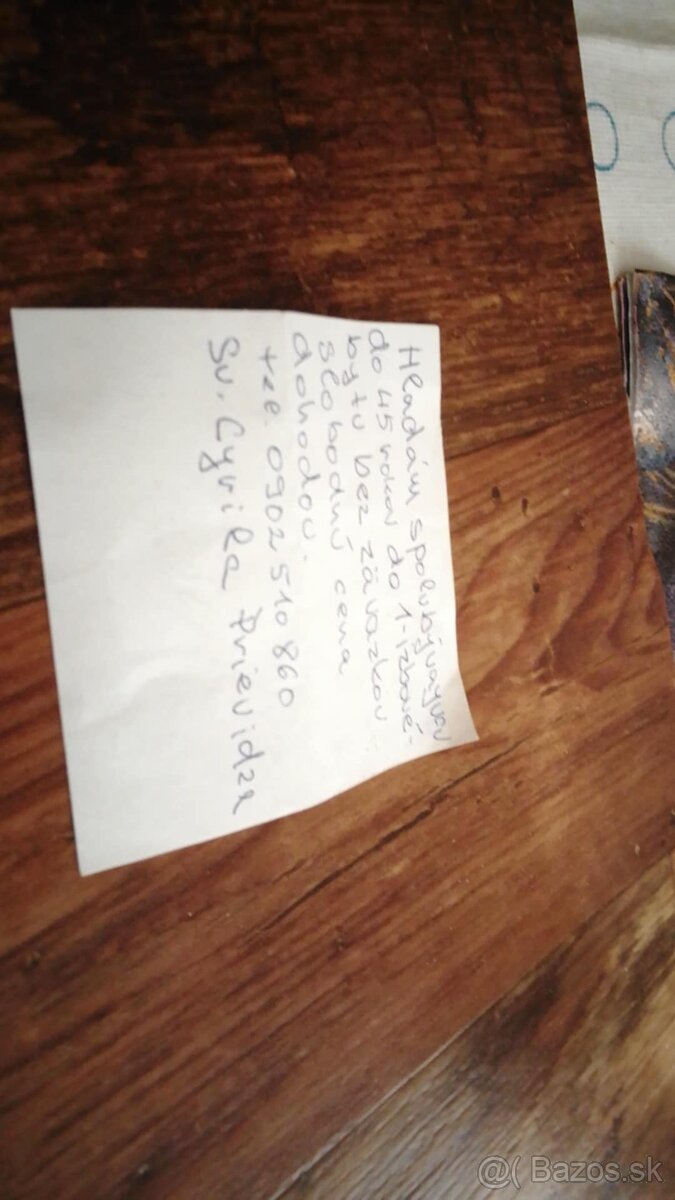 Hladám spolubývajúcu
do 45 rokov do 1-izbové-
bytu bez záväzkov
slobodnú cena
dohodou.
tel. 0902 510 860
Sv. Cyrila Prievidza
@( Bazos.sk